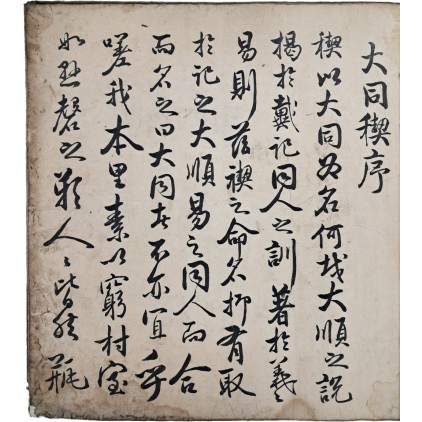 大同稧序
稧以大同為名何哉大順之說
揭於戴記同人之訓著於羲
易則茲稧之命名抑有取
於記之大順易之同人而合
而名之曰大同者不亦宜乎
嗟我本里素以窮村室
如懸磬之艱人〻皆瓶